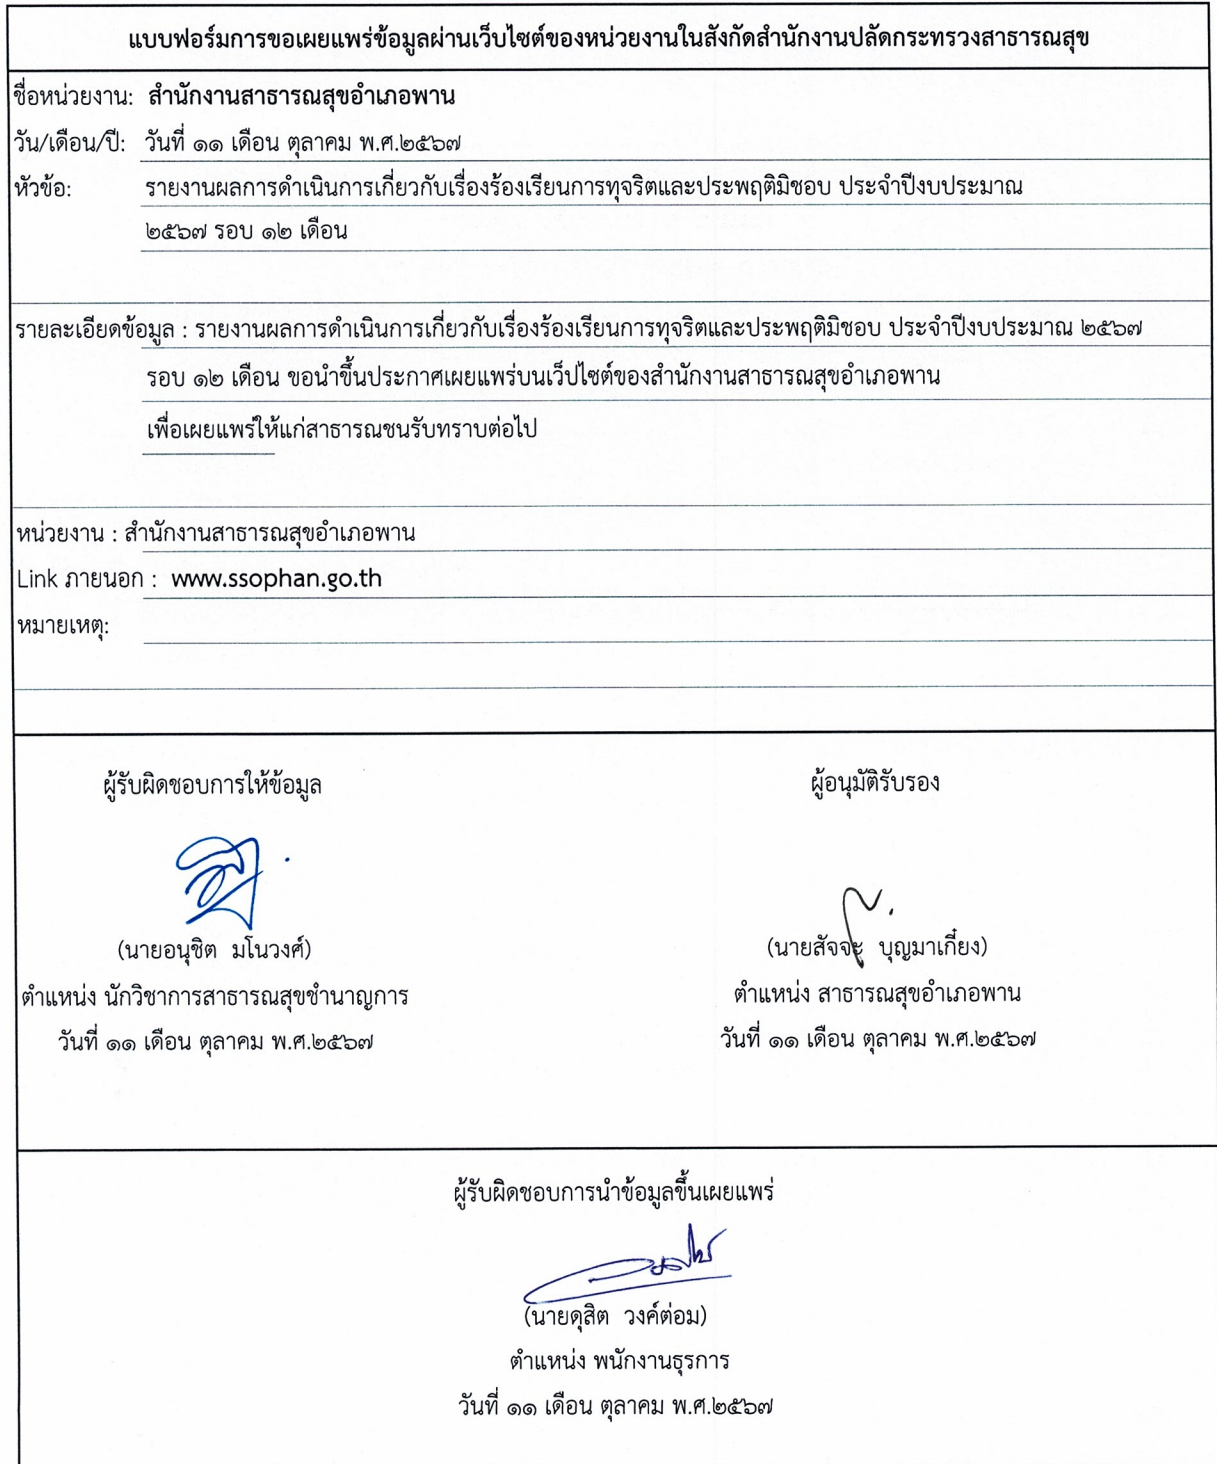 แบบฟอร์มการขอเผยแพร่ข้อมูลผ่านเว็บไซต์ของหน่วยงานในสังกัดสำนักงานปลัดกระทรวงสาธารณสุข
ชื่อหน่วยงาน: สำนักงานสาธารณสุขอำเภอพาน
วัน/เดือน/ปี: วันที่ ๑๑ เดือน ตุลาคม พ.ศ.๒๕๖๗
หัวข้อ: รายงานผลการดำเนินการเกี่ยวกับเรื่องร้องเรียนการทุจริตและประพฤติมิชอบ ประจำปีงบประมาณ
๒๕๖๗ รอบ ๑๒ เดือน
รายละเอียดข้อมูล : รายงานผลการดำเนินการเกี่ยวกับเรื่องร้องเรียนการทุจริตและประพฤติมิชอบ ประจำปีงบประมาณ ๒๕๖๗
รอบ ๑๒ เดือน ขอนำขึ้นประกาศเผยแพร่บนเว็ปไซต์ของสำนักงานสาธารณสุขอำเภอพาน
เพื่อเผยแพร่ให้แก่สาธารณชนรับทราบต่อไป
หน่วยงาน : สำนักงานสาธารณสุขอำเภอพาน
Link ภายนอก : www.ssophan.go.th
หมายเหตุ:
ผู้รับผิดชอบการให้ข้อมูล ผู้อนุมัติรับรอง
(นายอนุชิต มโนวงศ์) (นายสัจจะ บุญมาเกี๋ยง)
ตำแหน่ง นักวิชาการสาธารณสุขชำนาญการ ตำแหน่ง สาธารณสุขอำเภอพาน
วันที่ ๑๑ เดือน ตุลาคม พ.ศ.๒๕๖๗ วันที่ ๑๑ เดือน ตุลาคม พ.ศ.๒๕๖๗
ผู้รับผิดชอบการนำข้อมูลขึ้นเผยแพร่
(นายดุสิต วงค์ต่อม)
ตำแหน่ง พนักงานธุรการ
วันที่ ๑๑ เดือน ตุลาคม พ.ศ.๒๕๖๗